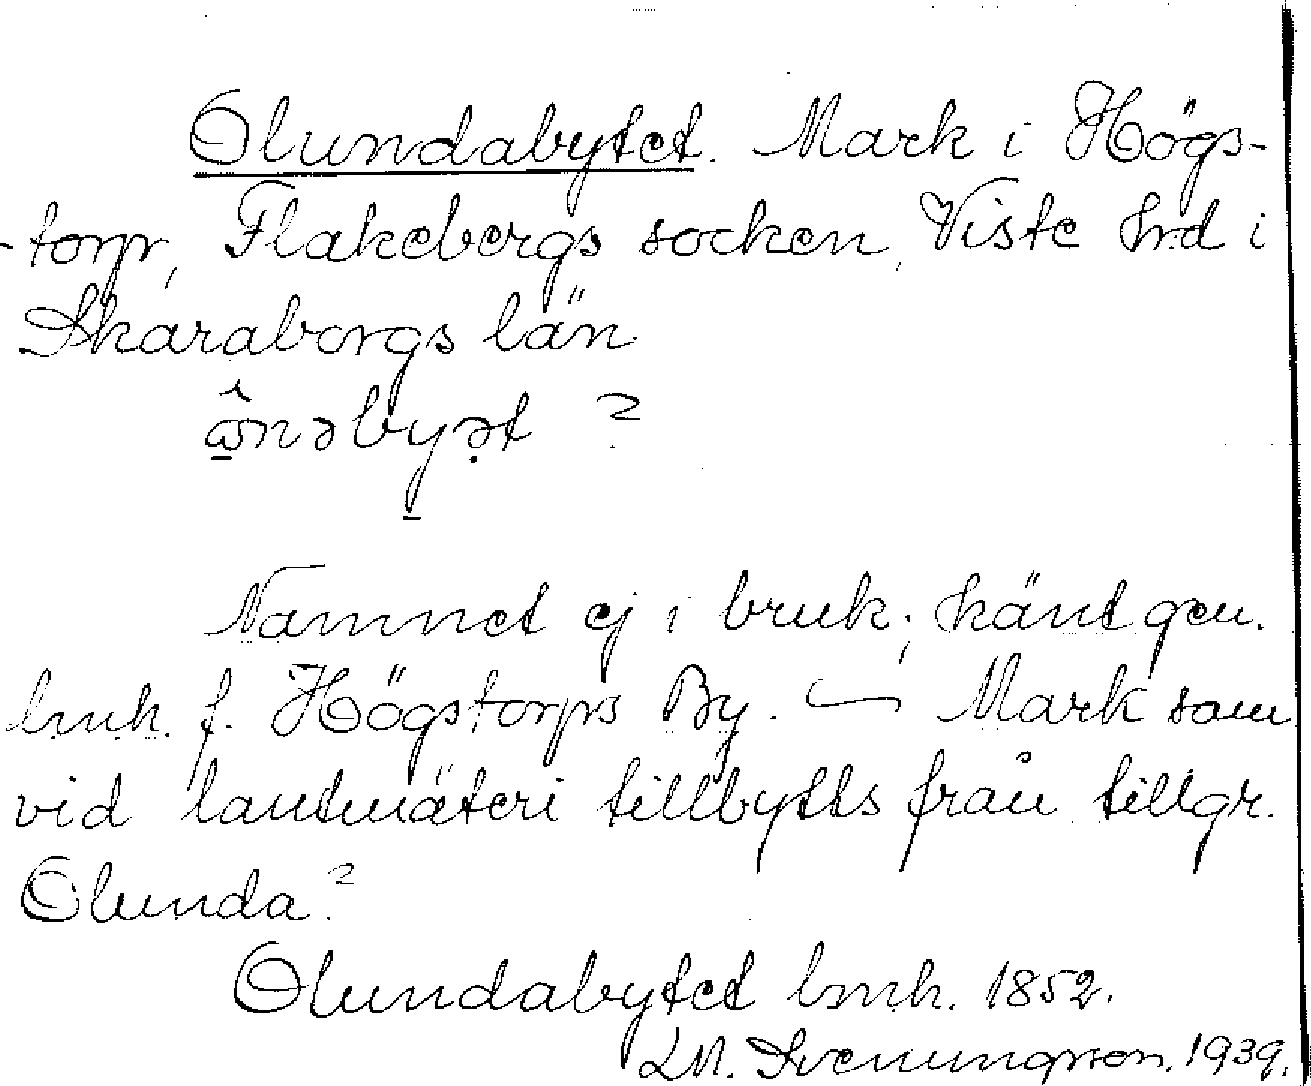 Olundabytet. Mark i Högs-
-torp, Flakebergs socken, Viste hrd i
Skaraborgs län
?
Namnet ej i bruk; känt gen.
lmh. f. Högstorps By. — Mark som
vid lantmäteri tillbytts från tillgr.
Olunda?
Olundabytet lmh. 1852.
LM. Svenungsson. 1939.